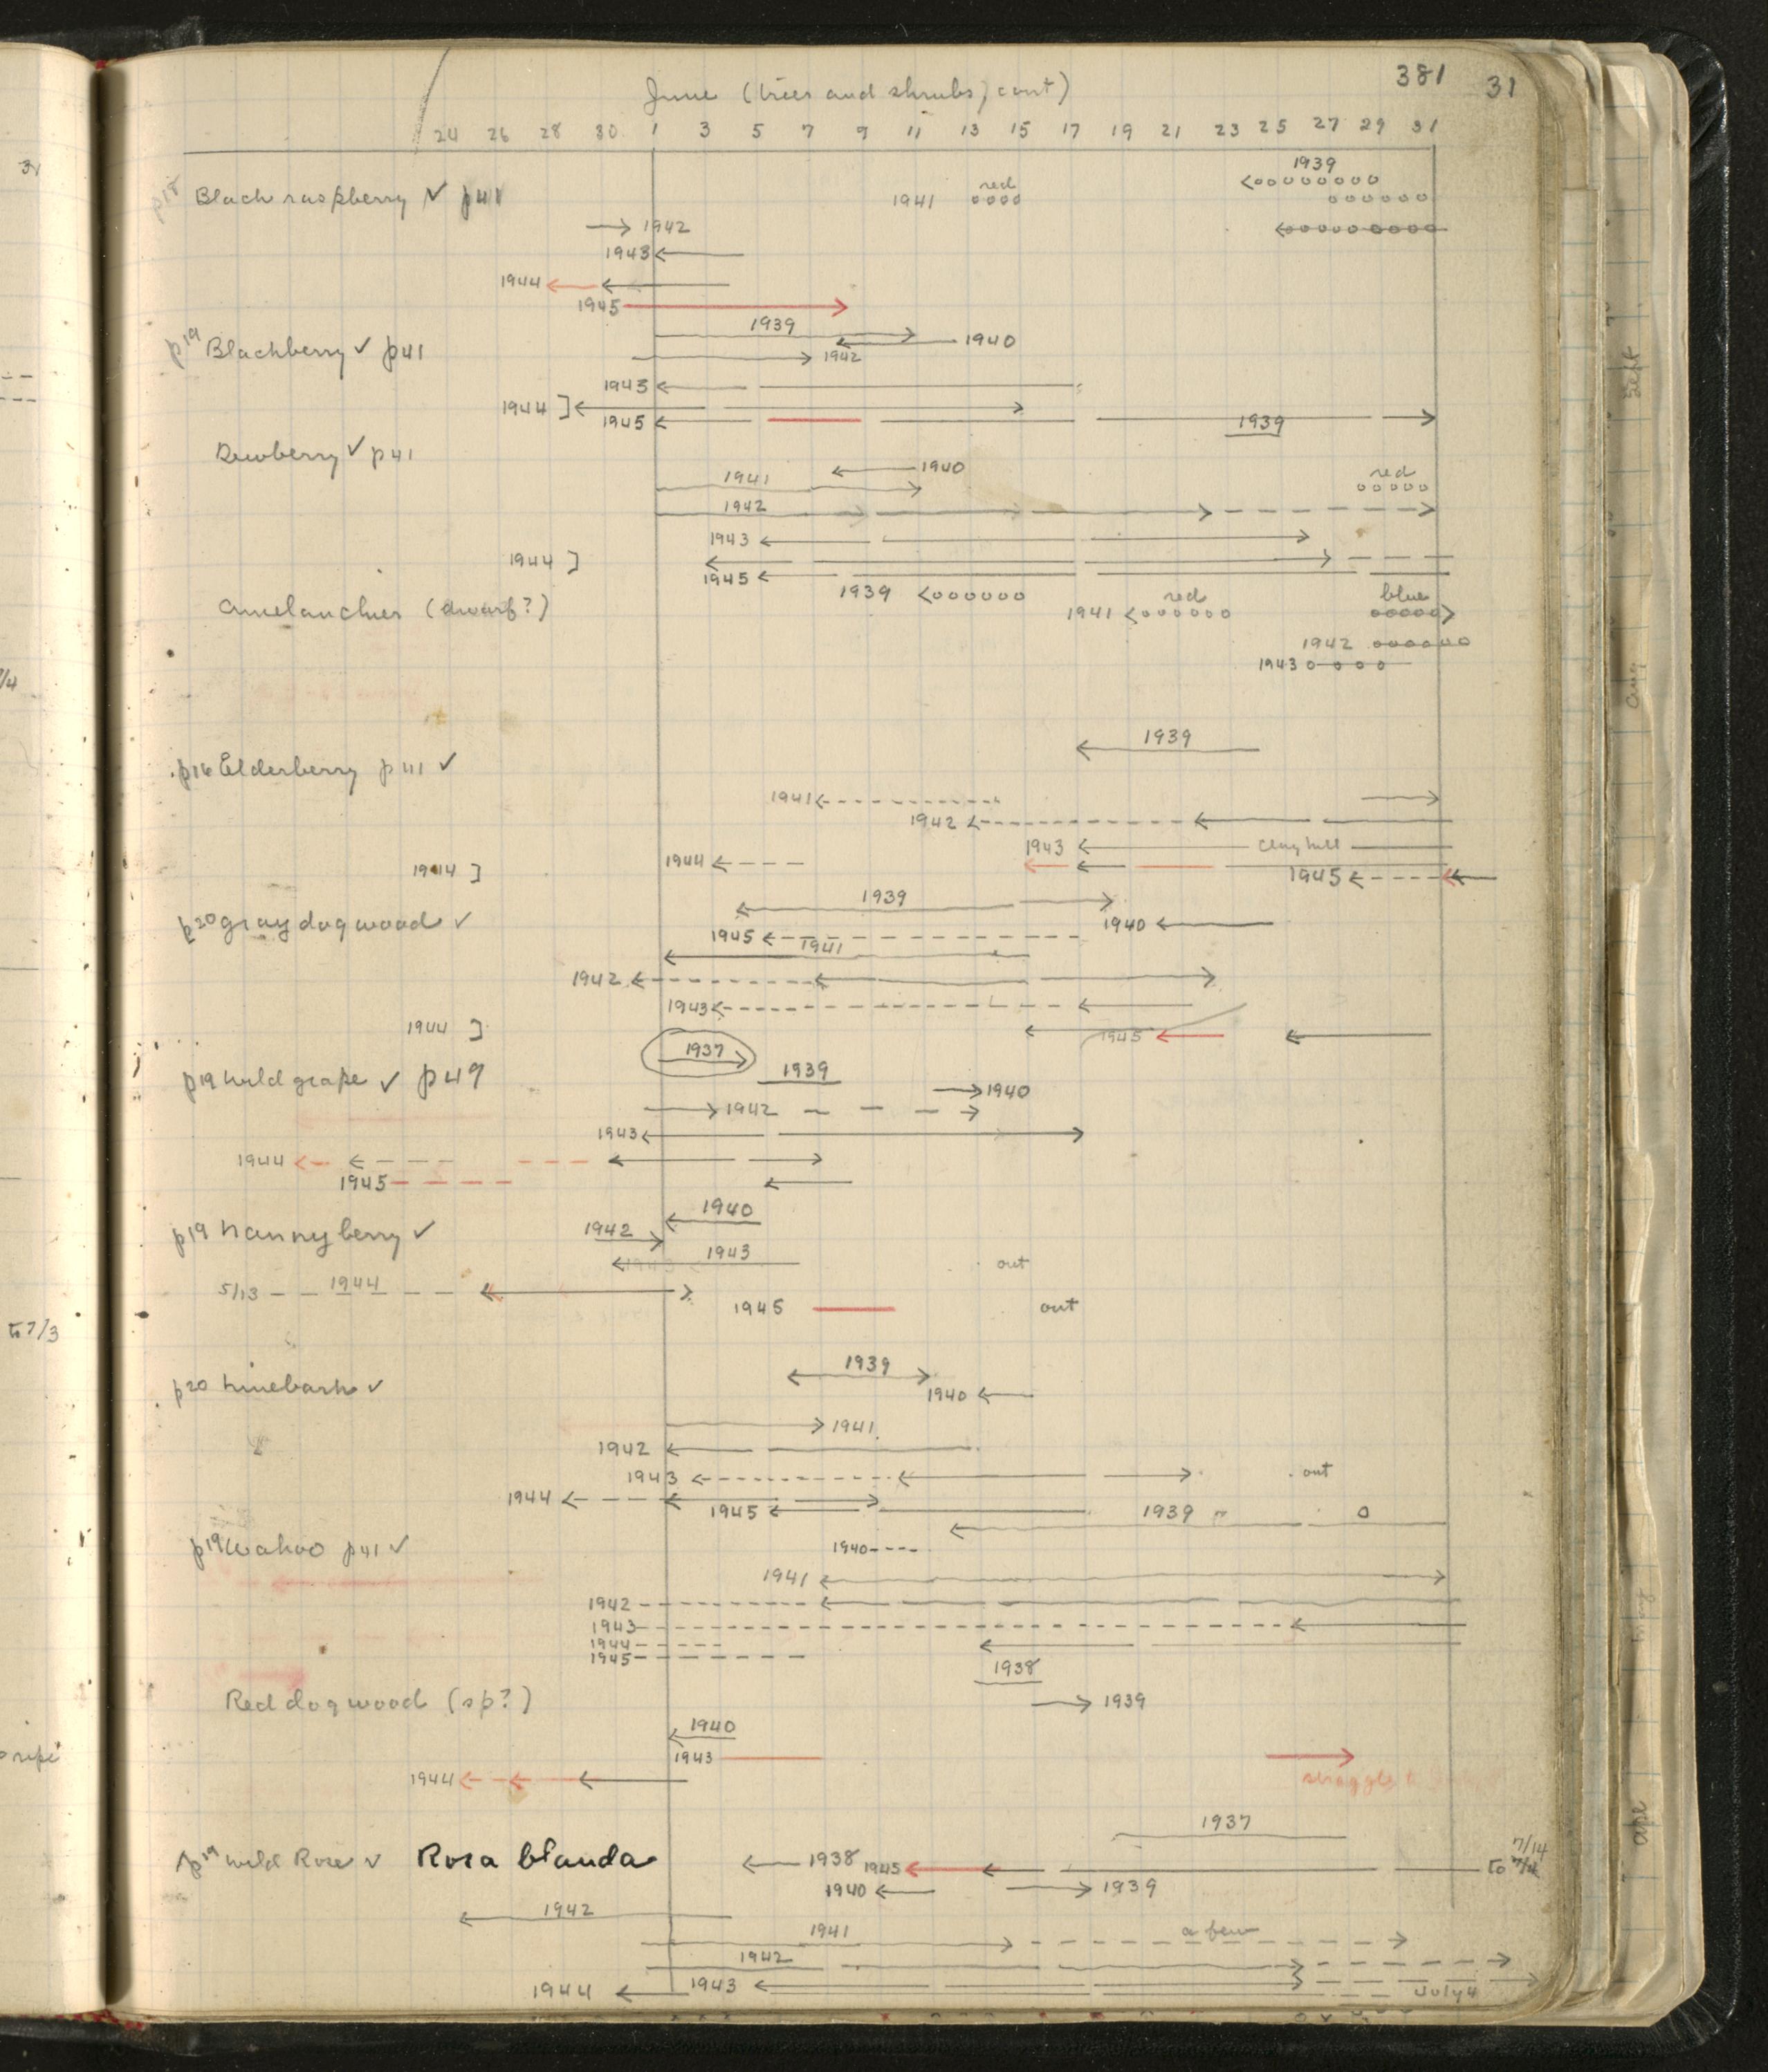 381 31
June (trees and shrubs, cont)
24 26 28 30 1 3 5 7 9 11 13 15 17 19 21 23 25 27 29 31
1939
p18 Black raspberry ✓ p41 1941 red
1942
1943
1944
1945
1939
p19 Blackberry ✓ p41 1940
1942
1943
1944 ]
1945 1939
Dewberry ✓ p41
1940
1941 red
1942
1943
1944 ]
1945
1939 red blue
Amelanchier (dwarf?) 1941
1942
1943
1939
p16 Elderberry p41 ✓
1941
1942
1943 Clay hill
1944
1944 ] 1945
1939
p20 gray dogwood ✓ 1940
1945 1941
1942
1943
1944 ] 1945
1937
1939
p19 wild grape ✓ p49 1940
1942
1943
1944
1945
1940
p19 Nannyberry ✓ 1942
1943 out
5/13 1944
1945 out
1939
p20 Ninebark ✓ 1940
1941
1942
1943 out
1944 1945 1939
p19 Wahoo p41 ✓ 1940
1941
1942
1943
1944
1945
1938
Red dogwood (sp?) 1939
1940
1943
1944
1937
7/14
p19 wild Rose ✓ Rosa blanda 1938 1945 to
1940 1939
1942
1941 a few
1942
1944 1943 July 4
3r
/4
to 7/3
ripe
Sept
Aug
May
Apr